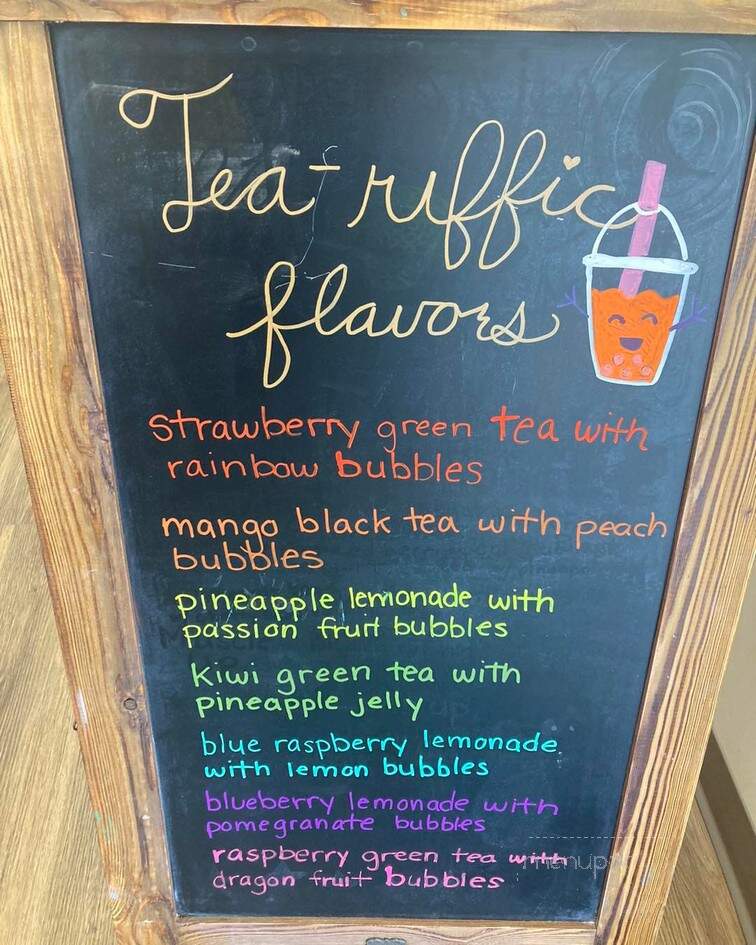 Tea-riffic
flavors
strawberry green tea with
rainbow bubbles
mango black tea with peach
bubbles
pineapple lemonade with
passion fruit bubbles
kiwi green tea with
pineapple jelly
blue raspberry lemonade
with lemon bubbles
blueberry lemonade with
pomegranate bubbles
raspberry green tea with
dragon fruit bubbles